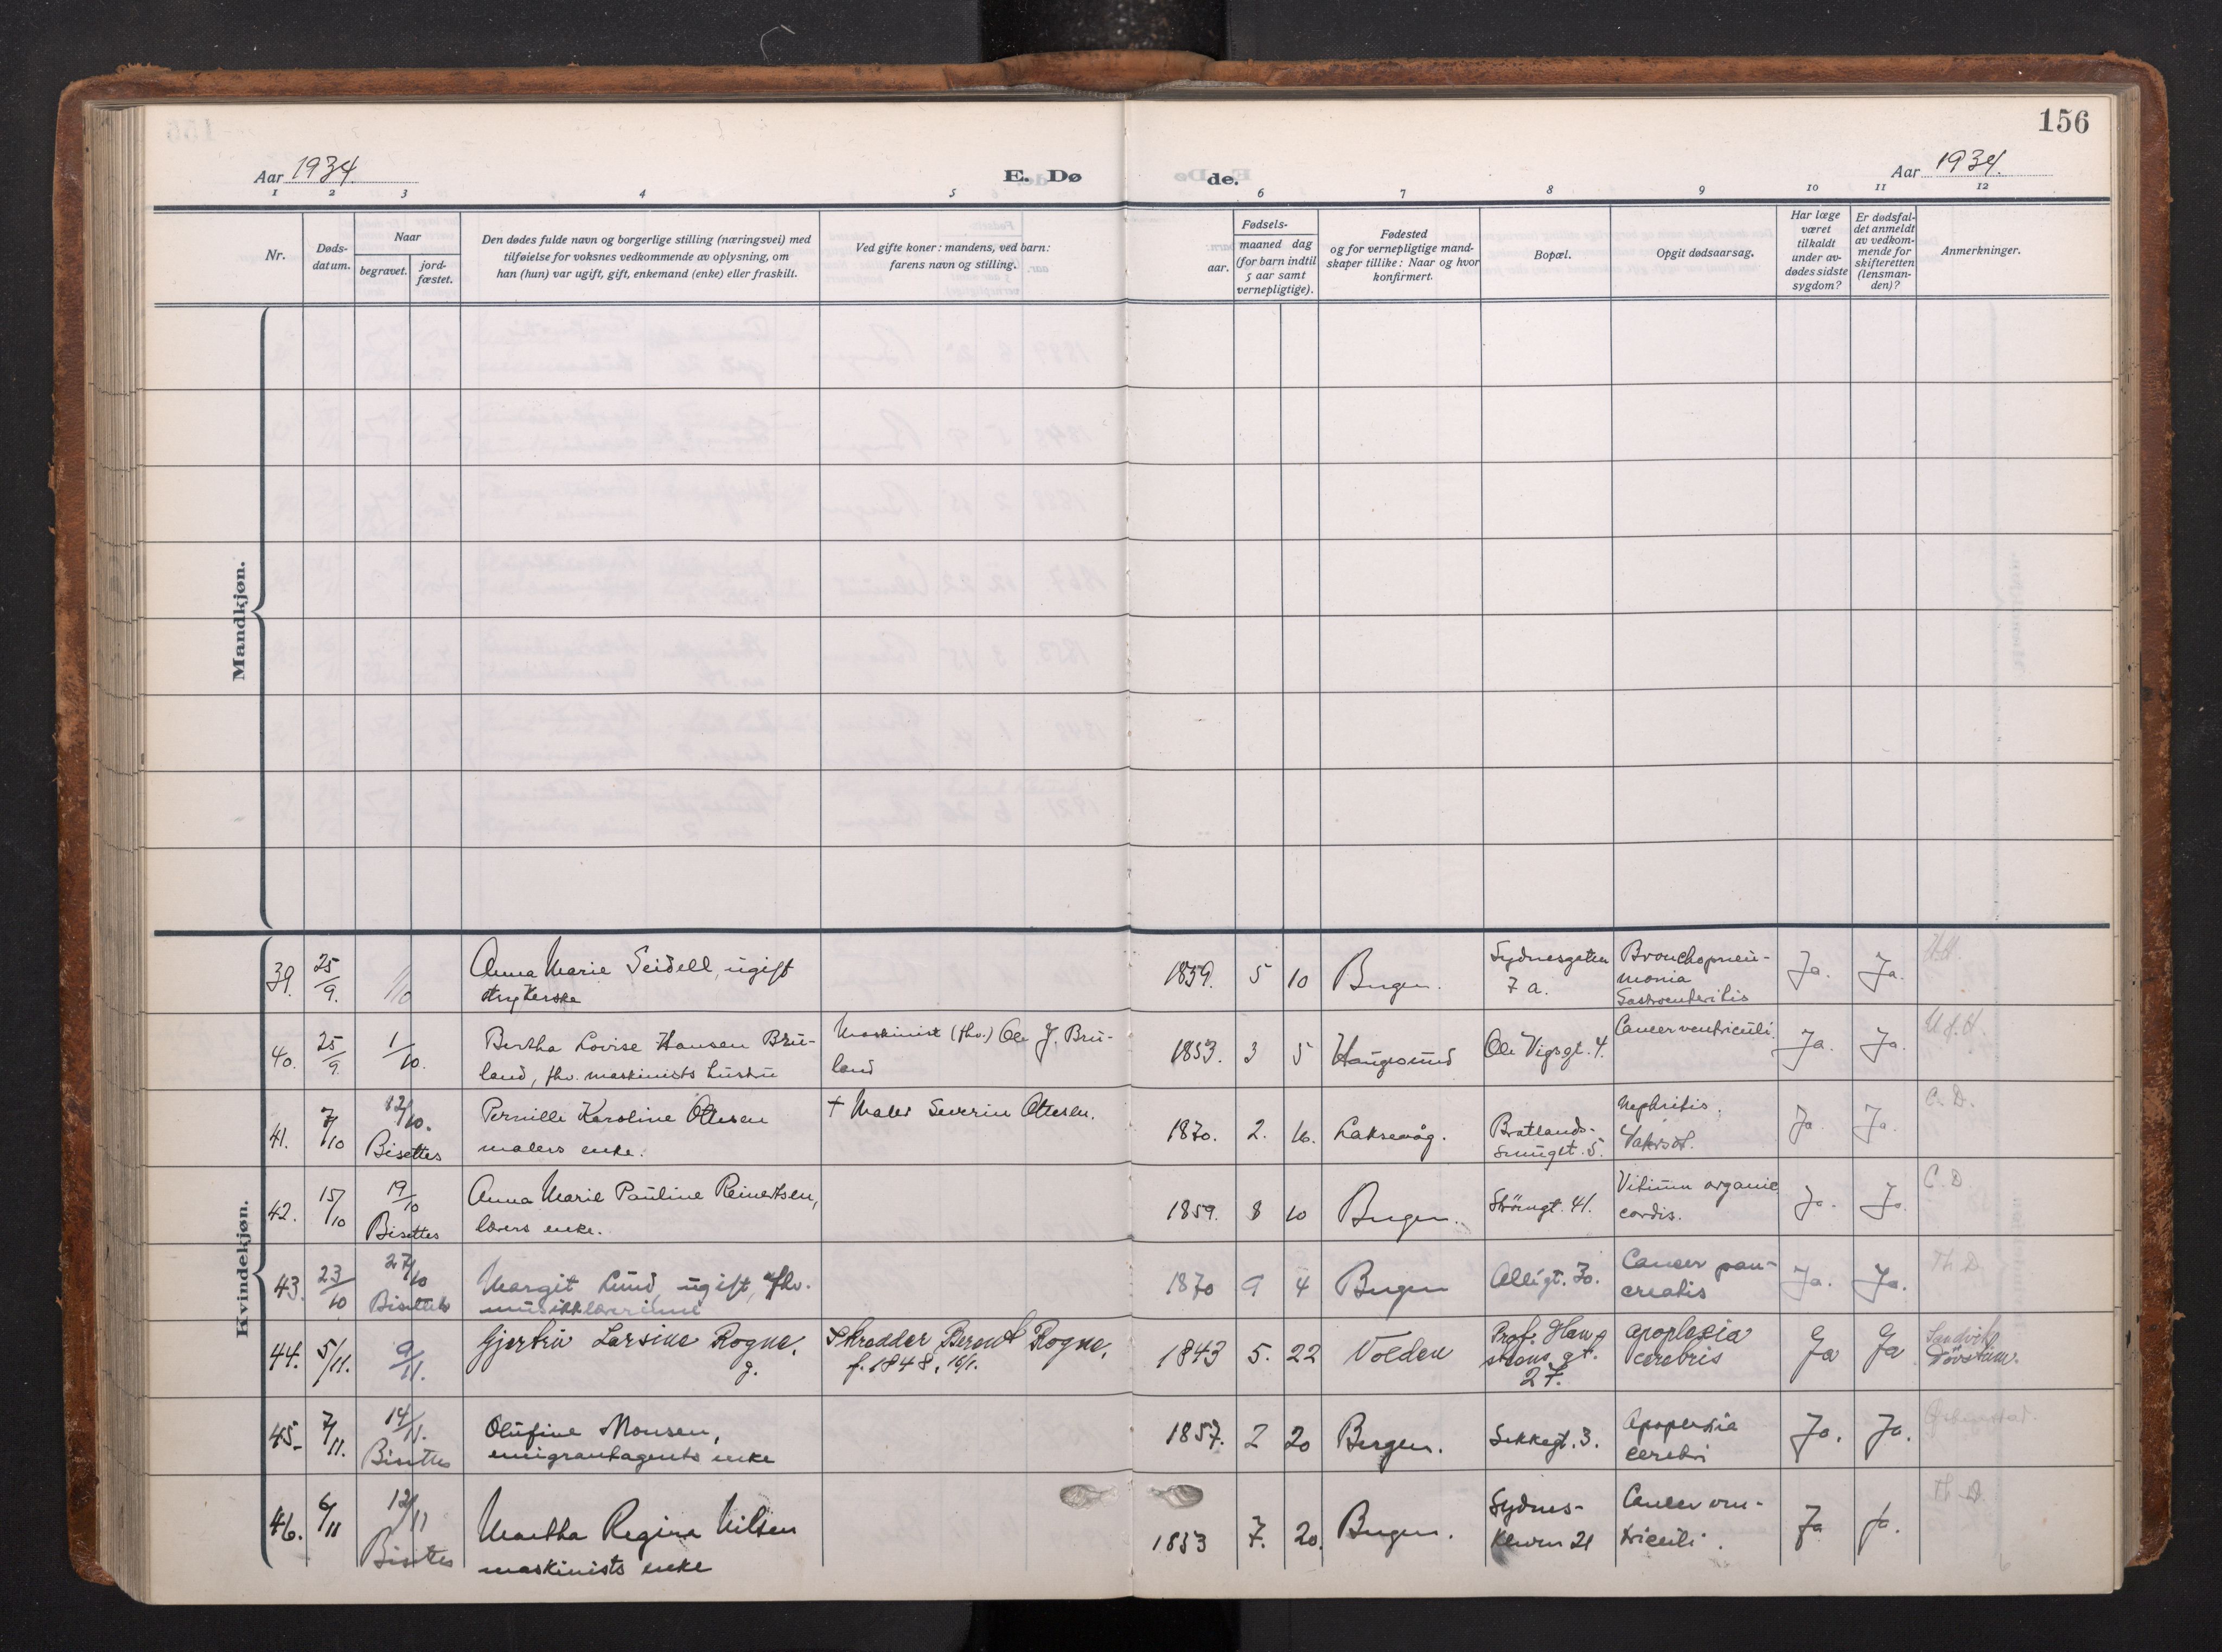 156
Aar 1934.
E. Dø
de.
Aar 1934.
1 2 3 4 5 6 7 8 9 10 11 12
Nr.
Døds-
datum.
Naar
begravet.
jord-
fæstet.
Den dødes fulde navn og borgerlige stilling (næringsvei) med
tilføielse for voksnes vedkommende av oplysning, om
han (hun) var ugift, gift, enkemand (enke) eller fraskilt.
Ved gifte koner: mandens, ved barn:
farens navn og stilling.
Fødsels-
aar.
maaned dag
(for barn indtil
5 aar samt
vernepligtige).
Fødested
og for vernepligtige mand-
skaper tillike: Naar og hvor
konfirmert.
Bopæl.
Opgit dødsaarsag.
Har læge
været
tilkaldt
under av-
dødes sidste
sygdom?
Er dødsfal-
det anmeldt
av vedkom-
mende for
skifteretten
(lensman-
den)?
Anmerkninger.
Mandkjøn.
Kvindekjøn.
39. 25/9. 1/10
Anna Marie Seidell, ugift
strykerske
1859. 5 10 Bergen.
Sydnesgaten
7 a.
Bronchopneu-
monia
Gastroenteritis
Ja. Ja.
40. 25/9. 1/10.
Bertha Lovise Hansen Bru-
land, fhv. maskinists hustru
Maskinist (fhv.) Ole J. Bru-
land
1853. 3 5 Haugesund
Ole Vigsgt. 4.
Cancer ventriculi.
Ja. Ja.
41. 7/10 12/10.
Bisettes
Pernille Karoline Ottesen
malers enke.
† Maler Severin Ottesen.
1870. 2. 16. Laksevåg.
Bratlands-
smugt. 5.
Nephritis.
Ja. Ja.
C. D.
42. 15/10 19/10
Bisettes
Anna Marie Pauline Reinertsen,
lærers enke.
1859. 8 10 Bergen.
Strömgt. 41.
Vitium organic
cordis.
Ja. Ja.
C. D.
43. 23/10 27/10
Bisettes
Margit Lund, ugift, fhv.
musikklærerinne
1870 9 4 Bergen
Allégt. 30.
Cancer pan-
creatis
Ja. Ja.
Th. D.
44. 5/11. 9/11.
Gjertru Larsine Rogne,
g.
Skredder Berent Rogne,
f. 1848, 16/1.
1843 5. 22 Volden
Prof. Han
steens gt.
27.
apoplexia
cerebris
Ja Ja
Sandvik
45. 7/11. 14/11.
Bisettes
Olufine Monsen,
emigrantagents enke
1857. 2 20 Bergen.
Sekkegt. 3.
Apopexia
cerebri
Ja. Ja.
46. 6/11 12/11
Bisettes
Martha Regina Nilsen
maskinists enke
1853 7. 20. Bergen.
Sydnes-
kleven 21
Cancer ven-
triculi.
Ja Ja.
Th. D.